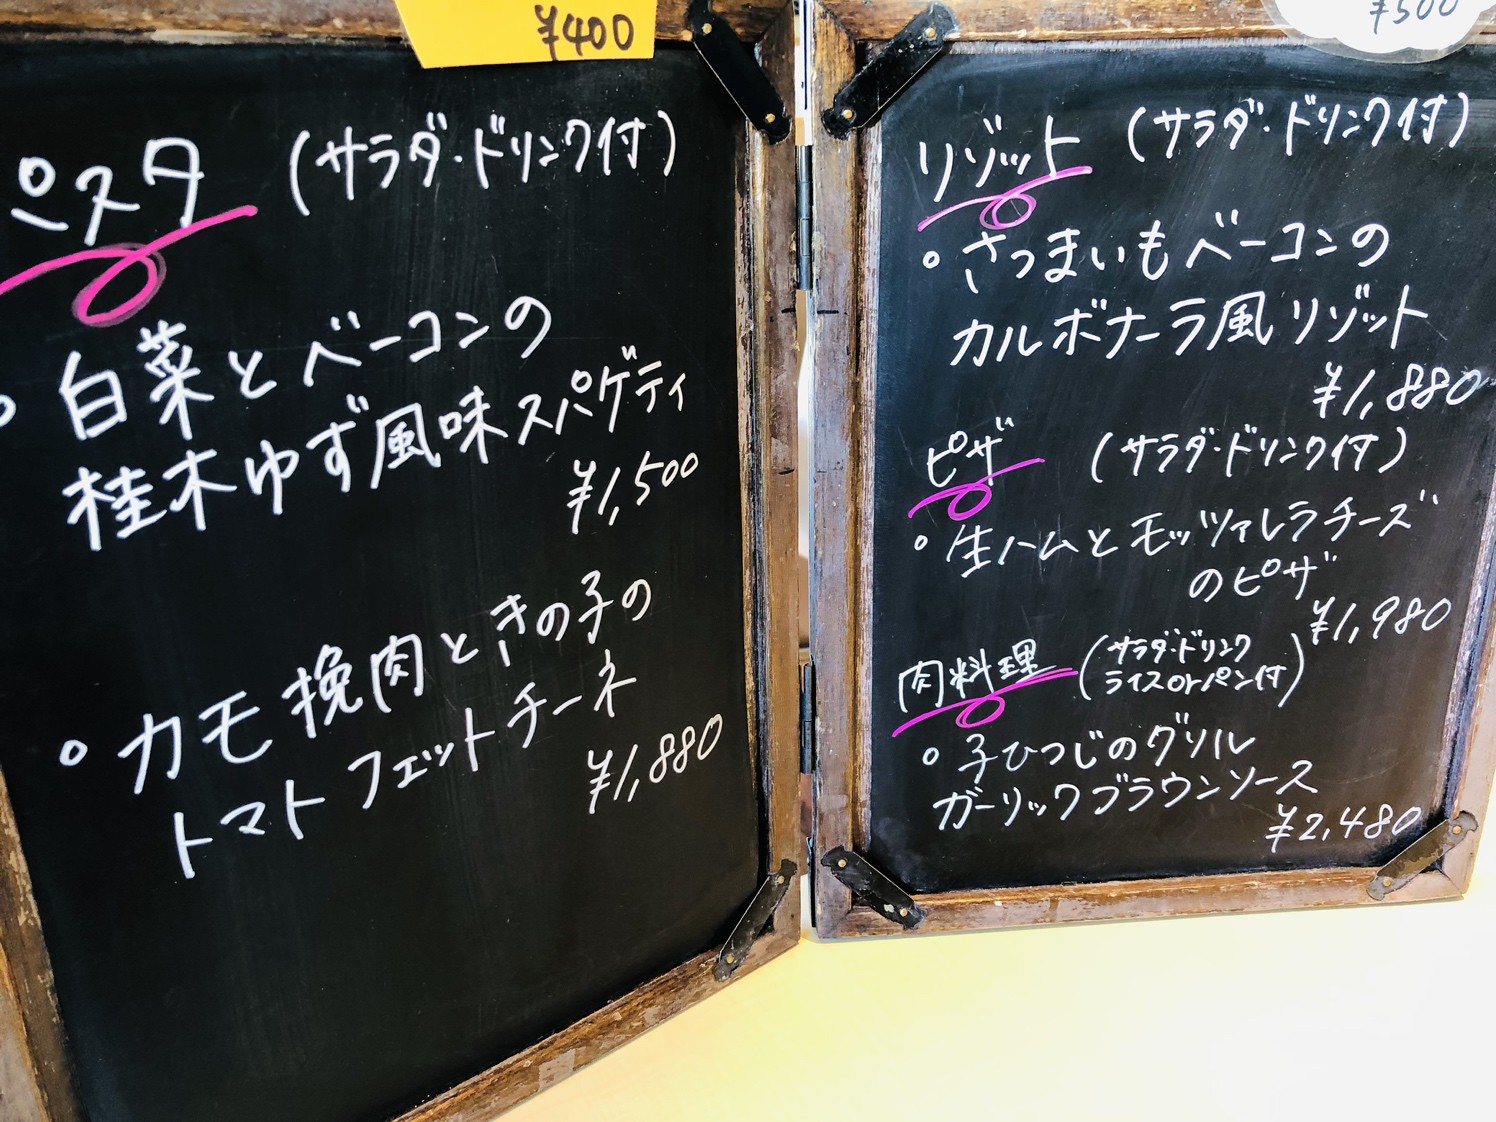 ¥400
パスタ (サラダ・ドリンク付)
○ 白菜とベーコンの
桂木ゆず風味スパゲティ
¥1,500
○ カモ挽肉ときの子の
トマトフェットチーネ
¥1,880
¥500
リゾット (サラダ・ドリンク付)
○ さつまいもベーコンの
カルボナーラ風リゾット
¥1,880
ピザ (サラダ・ドリンク付)
○ 生ハムとモッツァレラチーズ
のピザ
¥1,980
肉料理 (サラダ・ドリンク
ライスorパン付)
○ 子ひつじのグリル
ガーリックブラウンソース
¥2,480